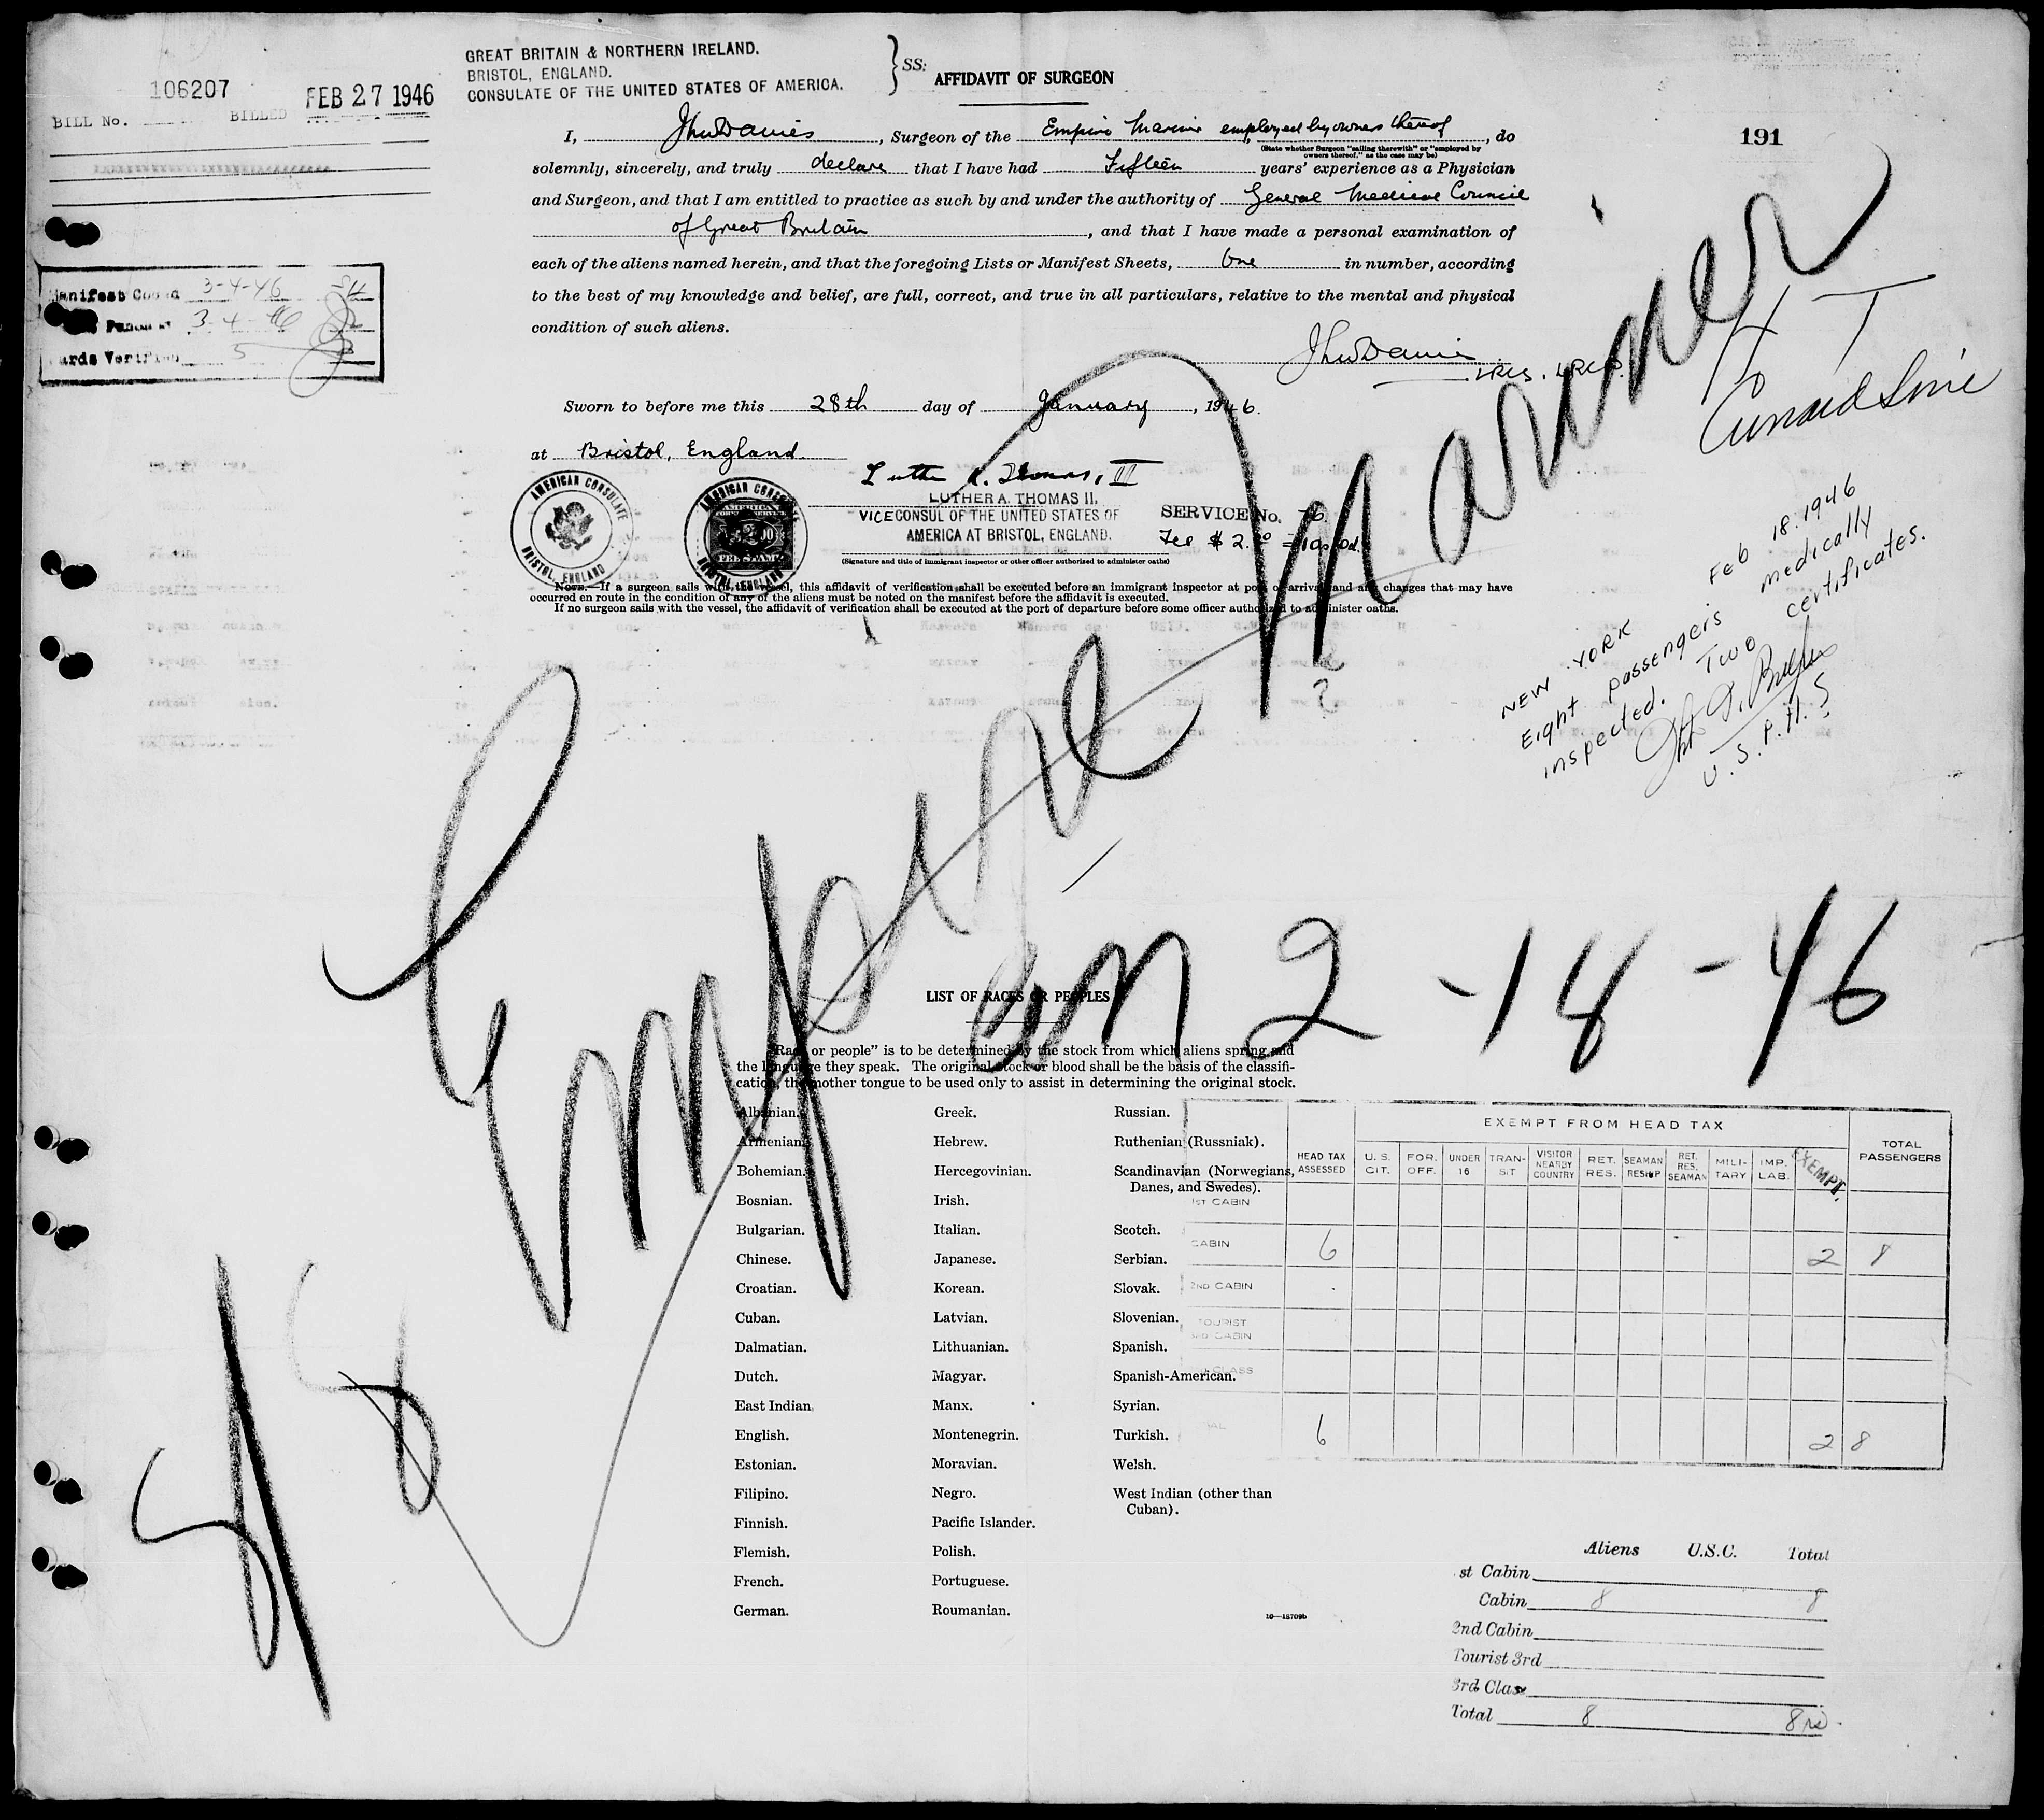 106207
BILL No. BILLED FEB 27 1946
GREAT BRITAIN & NORTHERN IRELAND.
BRISTOL, ENGLAND.
CONSULATE OF THE UNITED STATES OF AMERICA.
SS:
AFFIDAVIT OF SURGEON
191
I, Jhn Davies, Surgeon of the Empire Mariner employed by owners thereof, do
(State whether Surgeon "sailing therewith" or "employed by
owners thereof," as the case may be)
solemnly, sincerely, and truly declare that I have had Fifteen years' experience as a Physician
and Surgeon, and that I am entitled to practice as such by and under the authority of General Medical Council
of Great Britain, and that I have made a personal examination of
each of the aliens named herein, and that the foregoing Lists or Manifest Sheets, One in number, according
to the best of my knowledge and belief, are full, correct, and true in all particulars, relative to the mental and physical
condition of such aliens.
Manifest 3-4-46
3-4-46
Verified 5
Sworn to before me this 28th day of January, 1946.
at Bristol, England.
Luther A. Thomas, II
LUTHER A. THOMAS II.
VICE CONSUL OF THE UNITED STATES OF
AMERICA AT BRISTOL, ENGLAND.
(Signature and title of immigrant inspector or other officer authorized to administer oaths)
SERVICE No. 76
Fee $ 2.00 = 10s. 0d.
AMERICAN CONSULATE
BRISTOL, ENGLAND
AMERICAN
FEE STAMP
BRISTOL, ENGLAND
NOTE.—If a surgeon sails with the vessel, this affidavit of verification shall be executed before an immigrant inspector at port of arrival and any changes that may have
occurred en route in the condition of any of the aliens must be noted on the manifest before the affidavit is executed.
If no surgeon sails with the vessel, the affidavit of verification shall be executed at the port of departure before some officer authorized to administer oaths.
HT
Cunard Line
NEW YORK Feb 18.1946
Eight passengers medically
inspected. Two certificates.
U.S.P.H.S
SS Empire Mariner
on 2-18-46
LIST OF RACES OR PEOPLES
"Race or people" is to be determined by the stock from which aliens spring and
the language they speak. The original stock or blood shall be the basis of the classifi-
cation, the mother tongue to be used only to assist in determining the original stock.
Albanian.
Armenian.
Bohemian.
Bosnian.
Bulgarian.
Chinese.
Croatian.
Cuban.
Dalmatian.
Dutch.
East Indian.
English.
Estonian.
Filipino.
Finnish.
Flemish.
French.
German.
Greek.
Hebrew.
Hercegovinian.
Irish.
Italian.
Japanese.
Korean.
Latvian.
Lithuanian.
Magyar.
Manx.
Montenegrin.
Moravian.
Negro.
Pacific Islander.
Polish.
Portuguese.
Roumanian.
Russian.
Ruthenian (Russniak).
Scandinavian (Norwegians,
Danes, and Swedes).
Scotch.
Serbian.
Slovak.
Slovenian.
Spanish.
Spanish-American.
Syrian.
Turkish.
Welsh.
West Indian (other than
Cuban).
16—18709b
EXEMPT FROM HEAD TAX
HEAD TAX ASSESSED U.S. CIT. FOR. OFF. UNDER 16 TRANSIT VISITOR NEARBY COUNTRY RET. RES. SEAMAN RESHIP RET. RES. SEAMAN MILITARY IMP. LAB. EXEMPT. TOTAL PASSENGERS
1ST CABIN
CABIN 6 2 8
2ND CABIN
TOURIST
3RD CABIN
CLASS
6 2 8
Aliens U.S.C. Total
st Cabin
Cabin 8 8
2nd Cabin
Tourist 3rd
3rd Class
Total 8 8